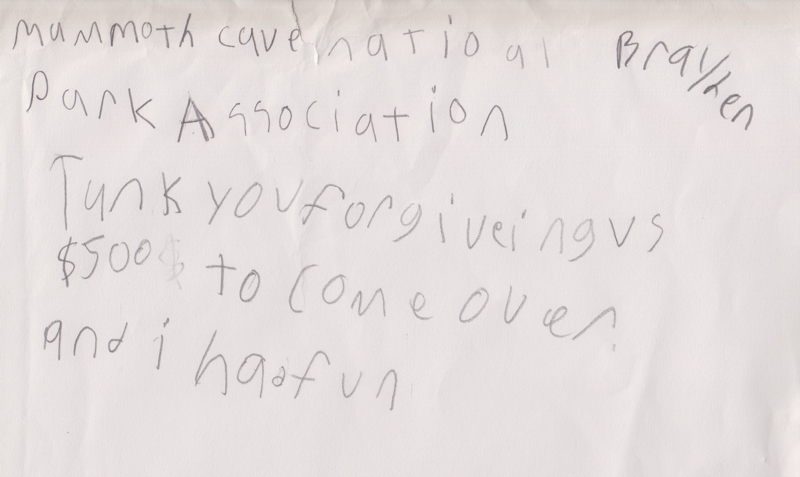 Mammoth cave national Braylen
Park Association
Tank you for giveing us
$500$ to come over.
and i had fun